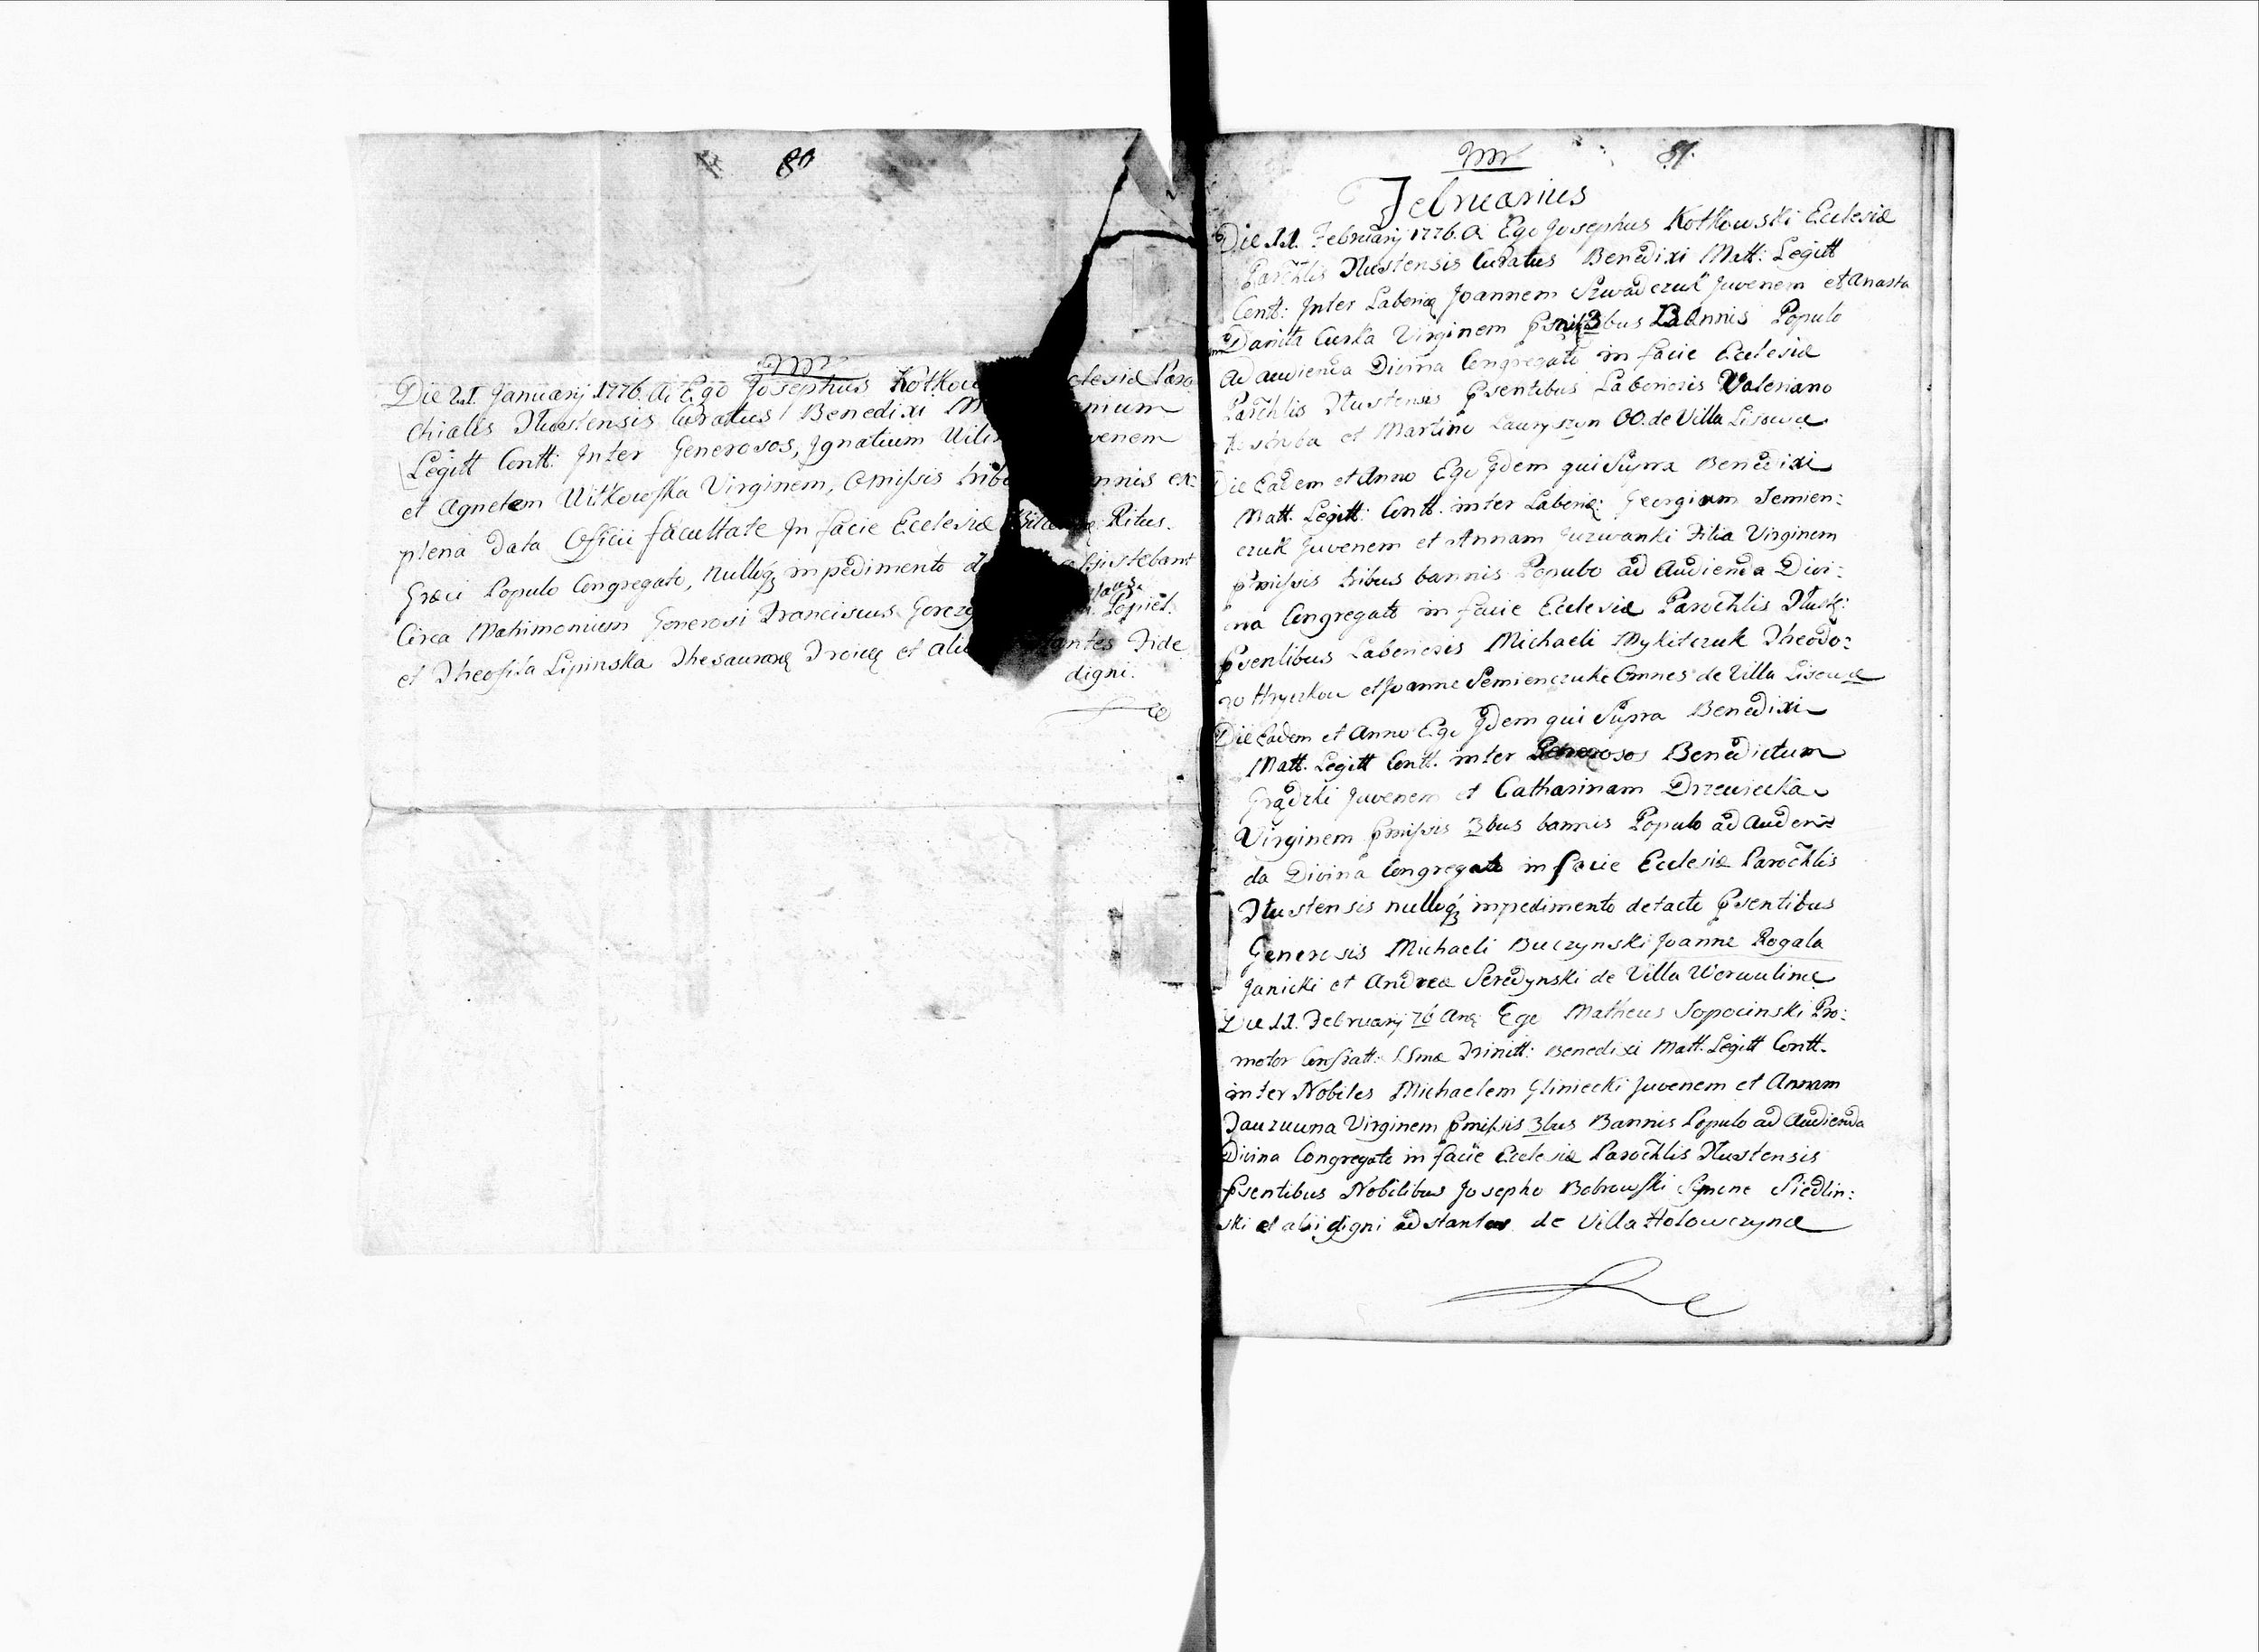 80
Die 21. Januarij 1776. Ai Ego Josephus Kotkow clesiæ Paro
chialis Tłustensis Curatus Benedixi M nium
Legitt Contt: Inter Generosos, Ignatium venem
et Agnetem Witkowska Virginem, Omissis tribu nnis ex
plena Data Officii facultate In facie Ecclesiæ Ritus.
Græci Populo Congregato, nulloq; impedimento d assistebant
Circa Matrimonium Generosi Franciscus
et Theofila Lipinska et alii antes Fide
digni.
81.
Februarius
Die 11. Februarij 1776. A Ego Josephus Kotkowski Ecclesiæ
Parochlis Tłustensis Curatus Benedixi Matt: Legitt
Contt: Inter Laborios Joannem Juvenem et Anasta
Virginem Pmissis 3bus Bannis Populo
Ad audienda Divina Congregato in facie Ecclesiæ
Parochlis Tłustensis Psentibus Laboriosis Valeriano
et Martino OO. de Villa Lisowce
Die Eadem et Anno Ego Idem qui Supra Benedixi
Matt. Legitt: Contt. inter Laborio: Georgium Semien:
czuk Juvenem et Annam Filia Virginem
Pmissis tribus bannis Populo ad Audienda Divi:
na Congregato in facie Ecclesiæ Parochlis Tłust:
Psentibus Laboriosis Michaeli Mykitczuk Theodo:
ro et Joanne Semienczuk Omnes de Villa Lisowce
Die Eadem et Anno Ego Idem qui Supra Benedixi
Matt. Legitt Contt. inter Generosos Benedictum
Grądzki Juvenem et Catharinam Drzewiecka
Virginem Pmissis 3bus bannis Populo ad Audien:
da Divina Congregato in facie Ecclesiæ Parochlis
Tłustensis nulloq; impedimento detecto Psentibus
Generosis Michaeli Buczynski Joanne Rogala
Janicki et Andrea Seredynski de Villa Worwulince
Die 11. Februarij 76 Ego Matheus Sopocinski Pro:
motor Confratt: SSmæ Trinitt: Benedixi Matt. Legitt Contt.
inter Nobiles Michaelem Gliniecki Juvenem et Annam
Virginem Pmissis 3bus Bannis Populo ad Audienda
Divina Congregato in facie Ecclesiæ Parochlis Tłustensis
Psentibus Nobilibus Josepho Bobrowski Siedlin:
ski et alii digni adstantes de Villa Hołowczynce